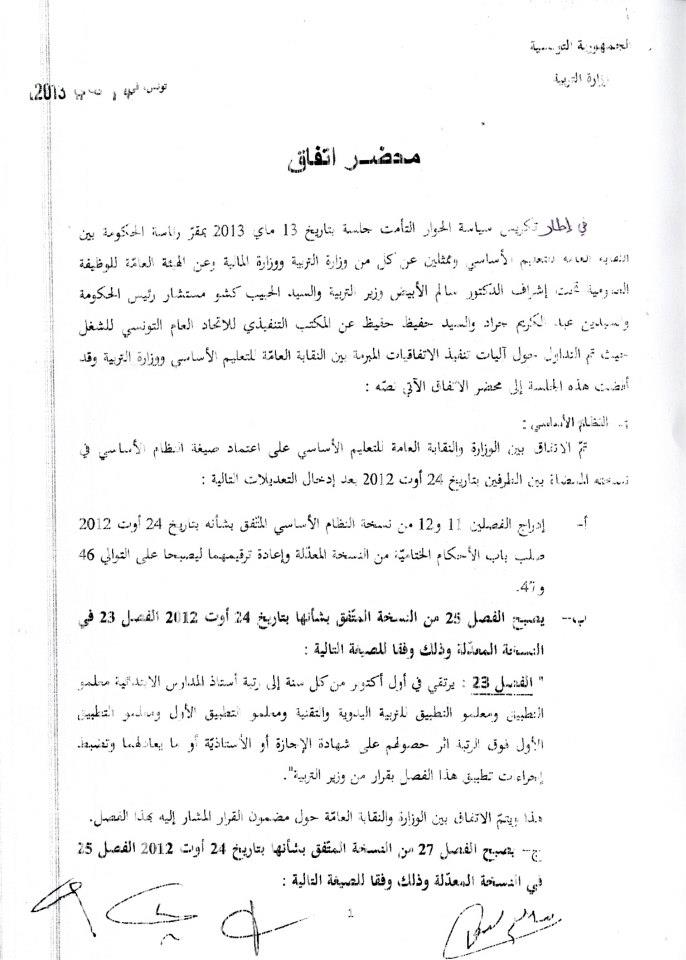 الجمهورية التونسية
وزارة التربية
تونس، في 2013
محضر اتفاق
في إطار تكريس سياسة الحوار التأمت جلسة بتاريخ 13 ماي 2013 بمقرّ رئاسة الحكومة بين
النقابة العامة للتعليم الأساسي وممثلين عن كل من وزارة التربية ووزارة المالية وعن الهيئة العامّة للوظيفة
العمومية تحت إشراف الدكتور سالم الأبيض وزير التربية والسيد الحبيب كشو مستشار رئيس الحكومة
والسيدين عبد الكريم جراد والسيد حفيظ حفيظ عن المكتب التنفيذي للاتحاد العام التونسي للشغل
حيث تم التداول حول آليات تنفيذ الاتفاقيات المبرمة بين النقابة العامّة للتعليم الأساسي ووزارة التربية وقد
أفضت هذه الجلسة إلى محضر الاتفاق الآتي نصّه :
النظام الأساسي :
تمّ الاتفاق بين الوزارة والنقابة العامة للتعليم الأساسي على اعتماد صيغة النظام الأساسي في
نسخته الممضاة بين الطرفين بتاريخ 24 أوت 2012 بعد إدخال التعديلات التالية :
أ- إدراج الفصلين 11 و12 من نسخة النظام الأساسي المتّفق بشأنه بتاريخ 24 أوت 2012
صلب باب الأحكام الختاميّة من النسخة المعدّلة وإعادة ترقيمهما ليصبحا على التوالي 46
و47.
ب- يصبح الفصل 25 من النسخة المتّفق بشأنها بتاريخ 24 أوت 2012 الفصل 23 في
النسخة المعدّلة وذلك وفقا للصيغة التالية :
" الفصل 23 : يرتقي في أول أكتوبر من كل سنة إلى رتبة أستاذ المدارس الابتدائية معلمو
التطبيق ومعلمو التطبيق للتربية اليدوية والتقنية ومعلمو التطبيق الأول ومعلمو التطبيق
الأول فوق الرتبة اثر حصولهم على شهادة الإجازة أو الأستاذيّة أو ما يعادلهما وتضبط
إجراءات تطبيق هذا الفصل بقرار من وزير التربية".
هذا ويتمّ الاتفاق بين الوزارة والنقابة العامّة حول مضمون القرار المشار إليه بهذا الفصل.
ج- يصبح الفصل 27 من النسخة المتّفق بشأنها بتاريخ 24 أوت 2012 الفصل 25
في النسخة المعدّلة وذلك وفقا للصيغة التالية :
1